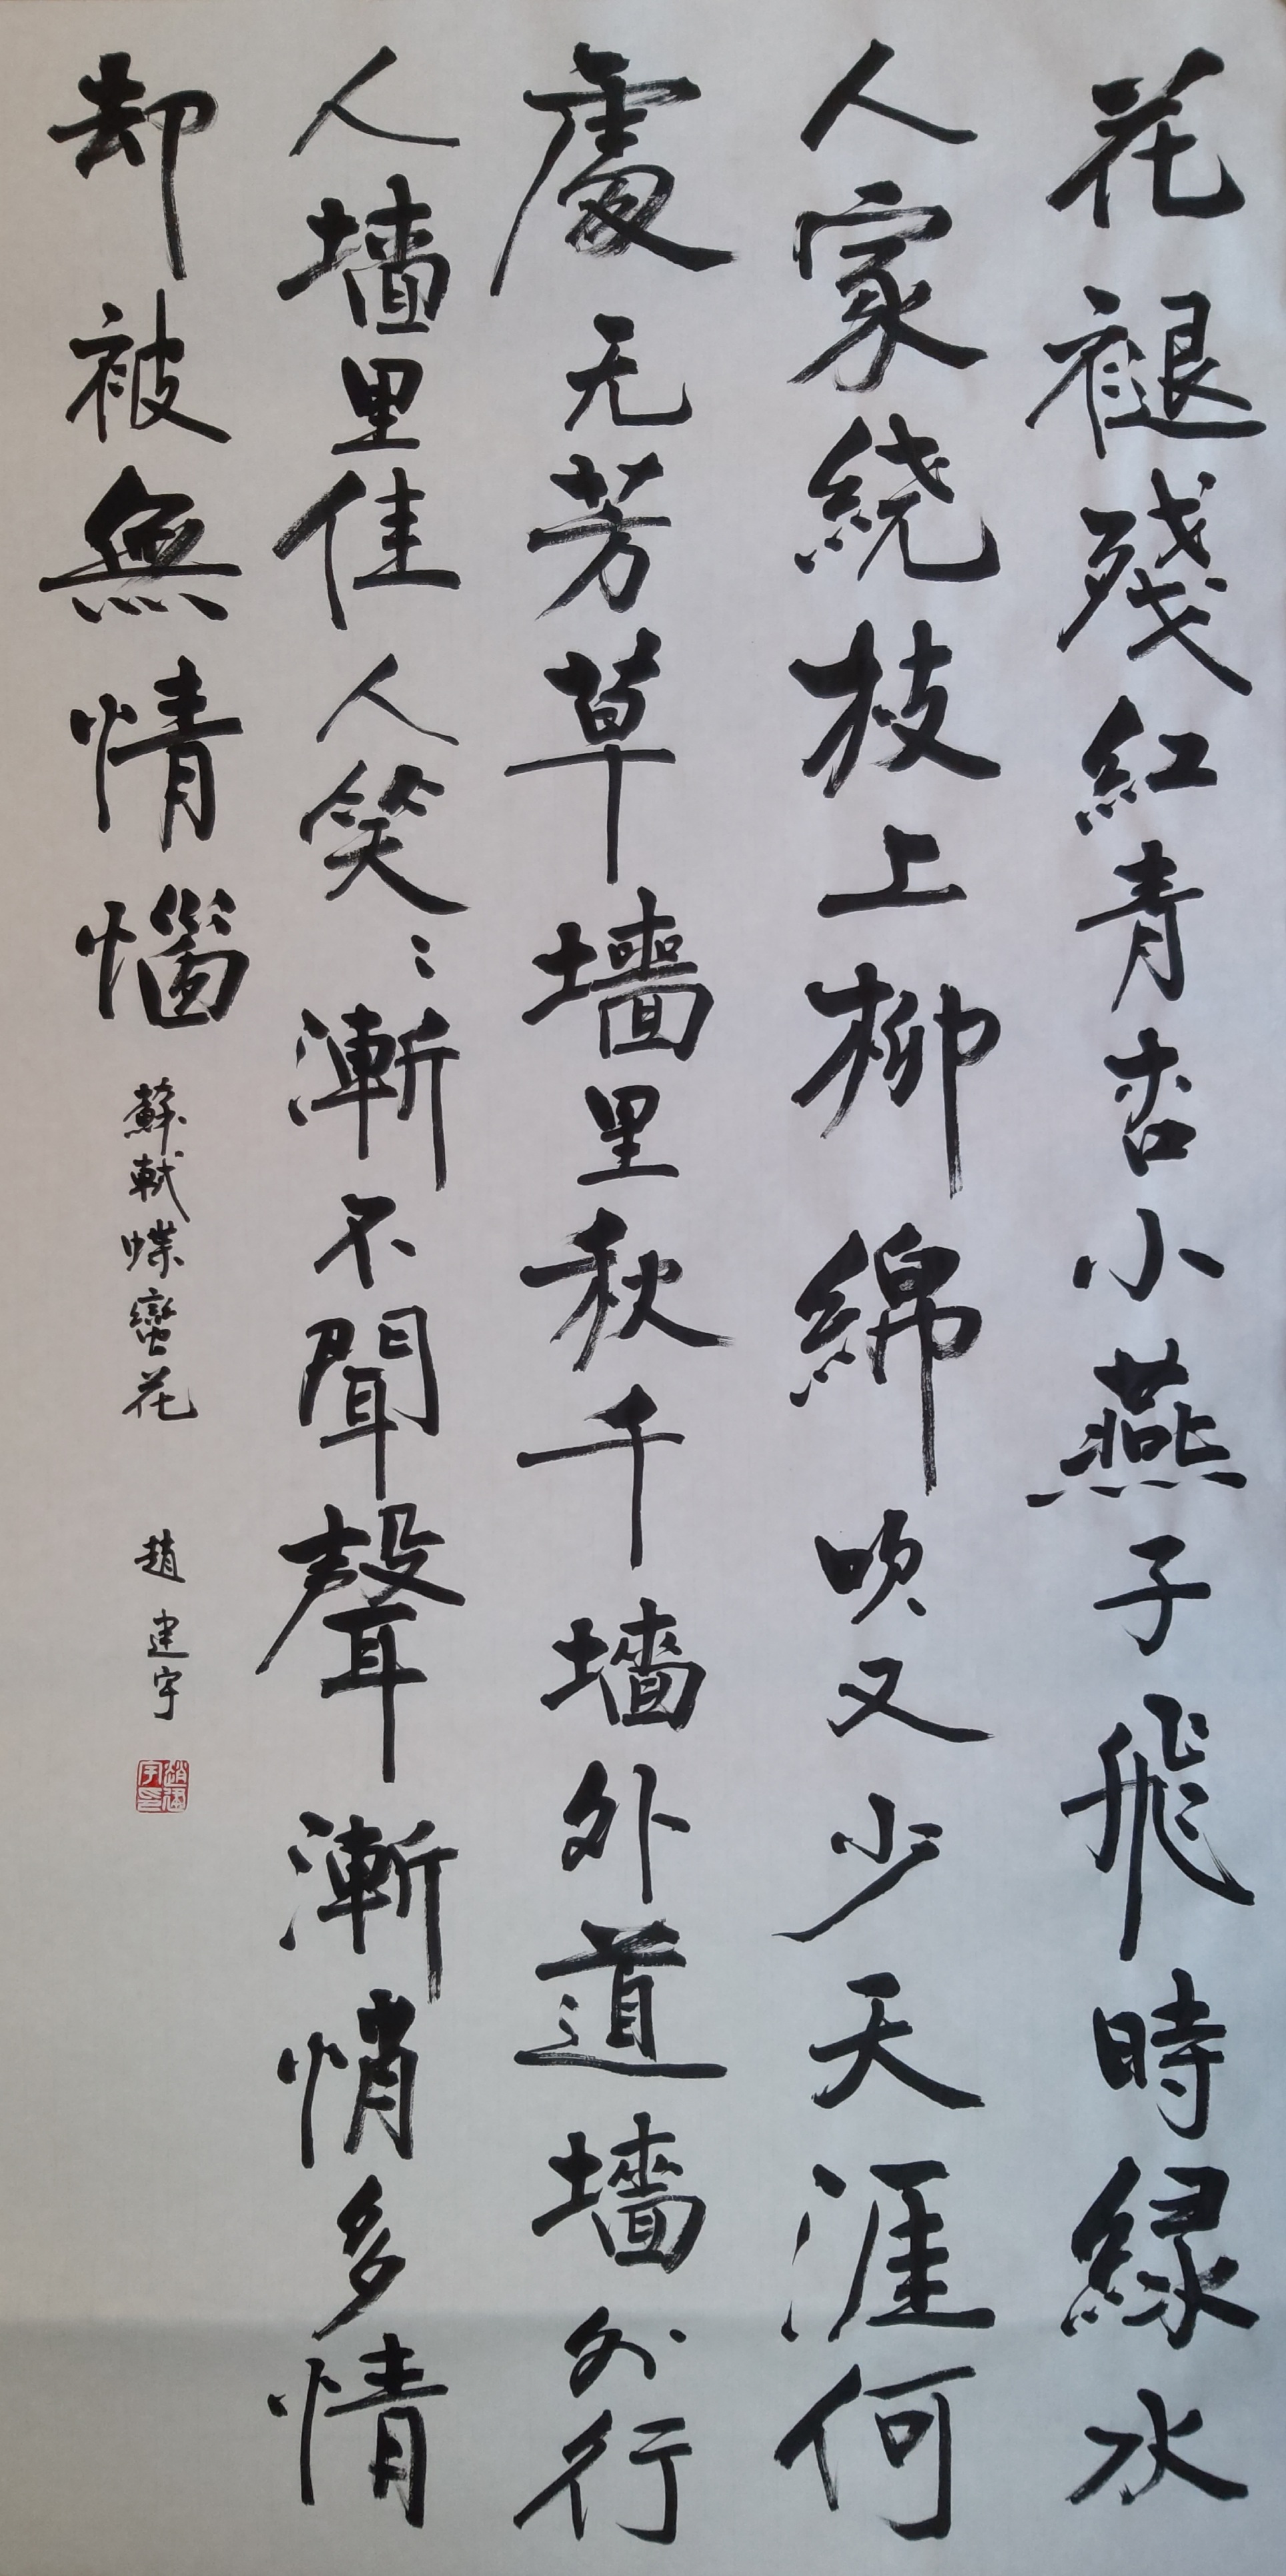 花褪殘紅青杏小燕子飛時緑水
人家繞枝上柳綿吹又少天涯何
處无芳草墙里秋千墙外道墙外行
人墙里佳人笑〻漸不聞聲漸悄多情
却被無情惱
蘇軾蝶蠻花
趙建宇
趙建宇印